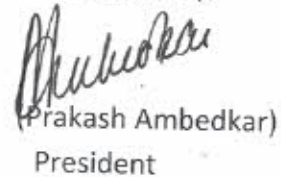 (Prakash Ambedkar)
President